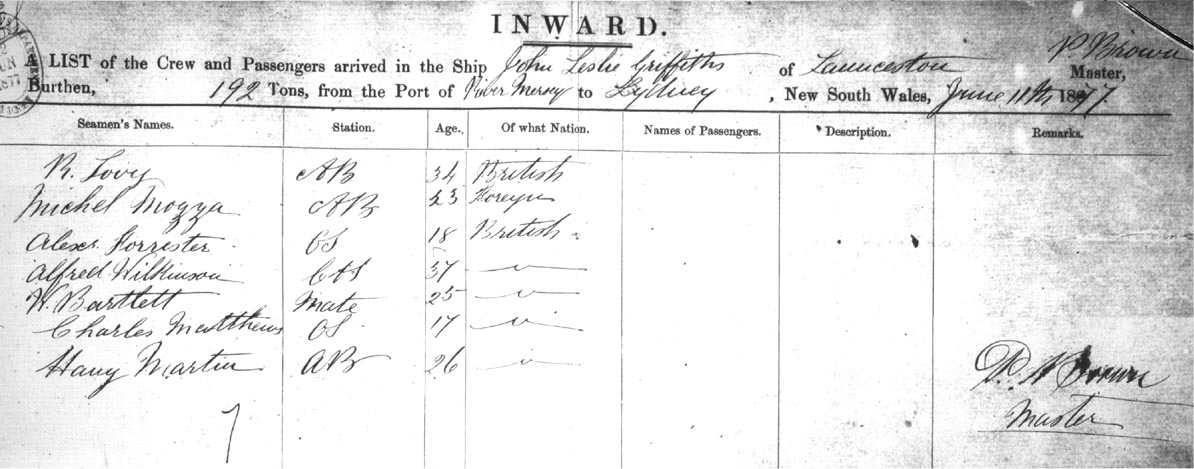 INWARD.
A LIST of the Crew and Passengers arrived in the Ship John Leslie Griffiths of Launceston P Brown Master,
Burthen, 192 Tons, from the Port of River Mersey to Sydney, New South Wales, June 11th 1877
Seamen's Names. Station. Age. Of what Nation. Names of Passengers. Description. Remarks.
R. Lovy AB 34 British
Michel Mozza AB 23 Foreign
Alexr. Forrester OS 18 British
Alfred Wilkinson 37 "
W Bartlett Mate 25 "
Charles Matthews OS 17 "
Harry Martin AB 26 "
P. Brown
Master
7